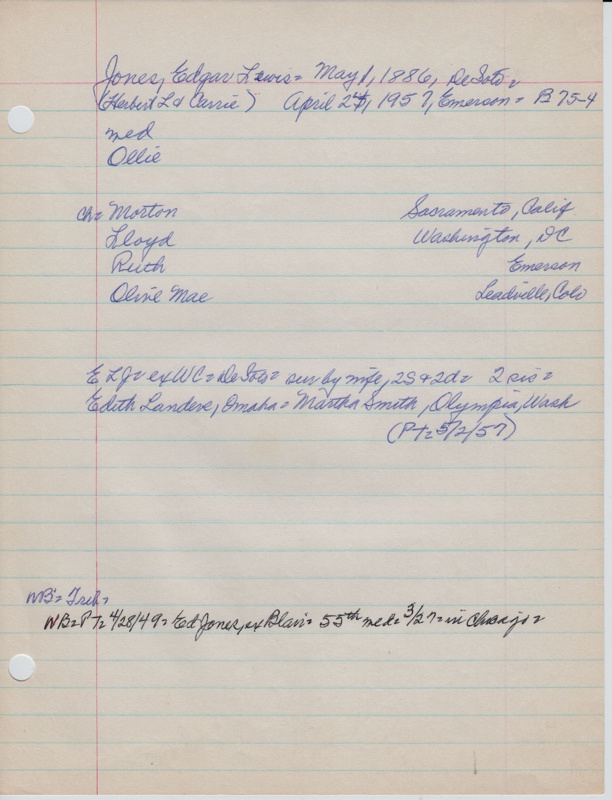 Jones, Edgar Lewis = May 1, 1886, DeSoto =
(Herbert L & Carrie) April 24, 1957, Emerson = B 75-4
med
Ollie
ch = Morton Sacramento, Calif
Lloyd Washington, DC
Ruth Emerson
Olive Mae Leadville, Colo
E L J = ex WC = DeSoto = sur by wife, 2S & 2d = 2 sis =
Edith Landers, Omaha = Martha Smith, Olympia, Wash
(PT = 5/2/57)
WB = Trib =
WB = PT = 4/28/49 = Ed Jones, ex Blair = 55th med = 3/27 = in Chicago =